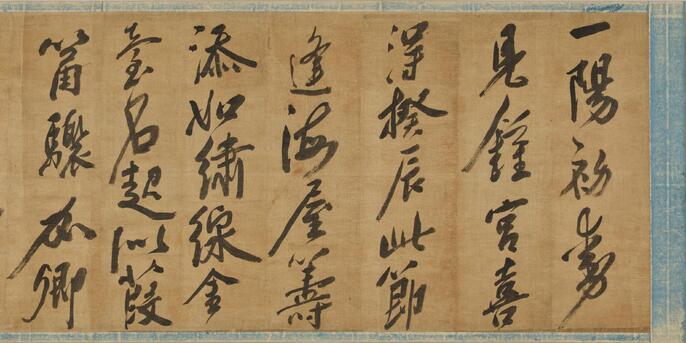 一陽初動
見鍾宮喜
得揆辰此節
逢海屋籌
添如繡線金
臺名超似葭
筩驟卿